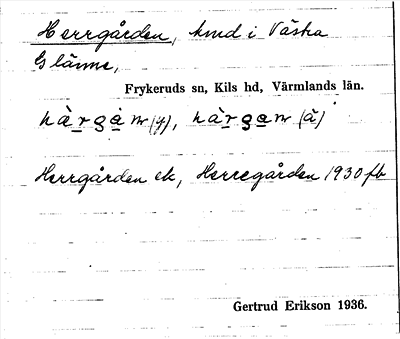 Herrgården, hmd i Västra
Glänne,
Frykeruds sn, Kils hd, Värmlands län.
Herrgården ek, Herregården 1930 fb
Gertrud Erikson 1936.